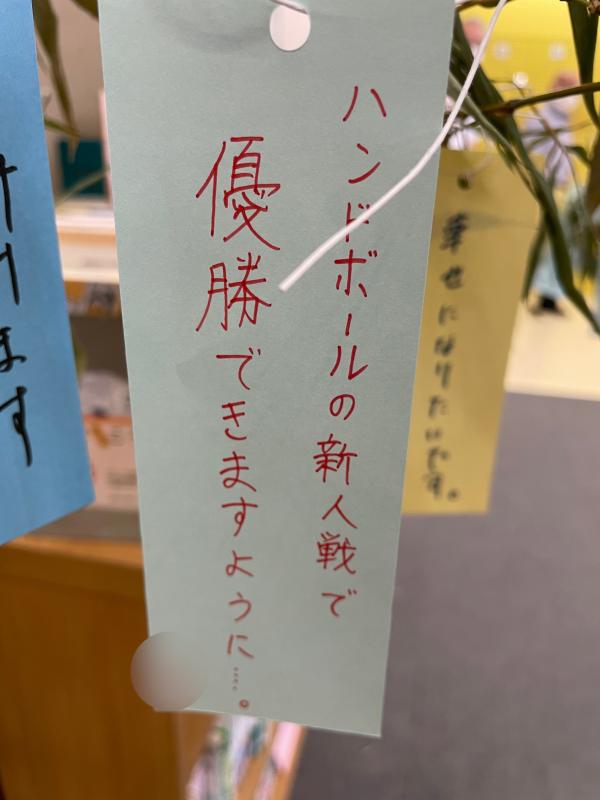 ハンドボールの新人戦で
優勝できますように….。
幸せになりたいです。
けますす